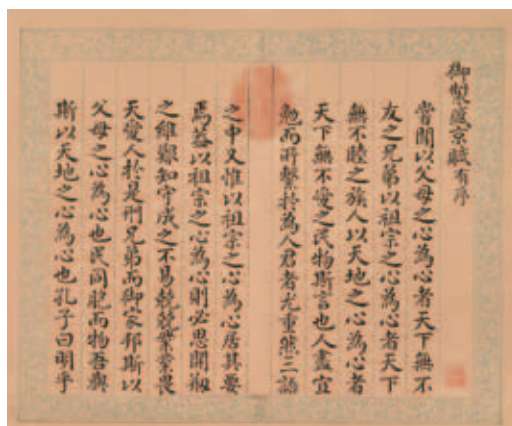 御製盛京賦有序
嘗聞以父母之心為心者天下無不
友之兄弟以祖宗之心為心者天下
無不睦之族人以天地之心為心者
天下無不愛之民物斯言也人盡宜
勉而所繫於為人君者尤重然三語
之中又惟以祖宗之心為心居其要
焉蓋以祖宗之心為心則必思開創
之維艱知守成之不易兢兢業業畏
天愛人於是刑兄弟而御家邦斯以
父母之心為心也民同胞而物吾與
斯以天地之心為心也孔子曰明乎